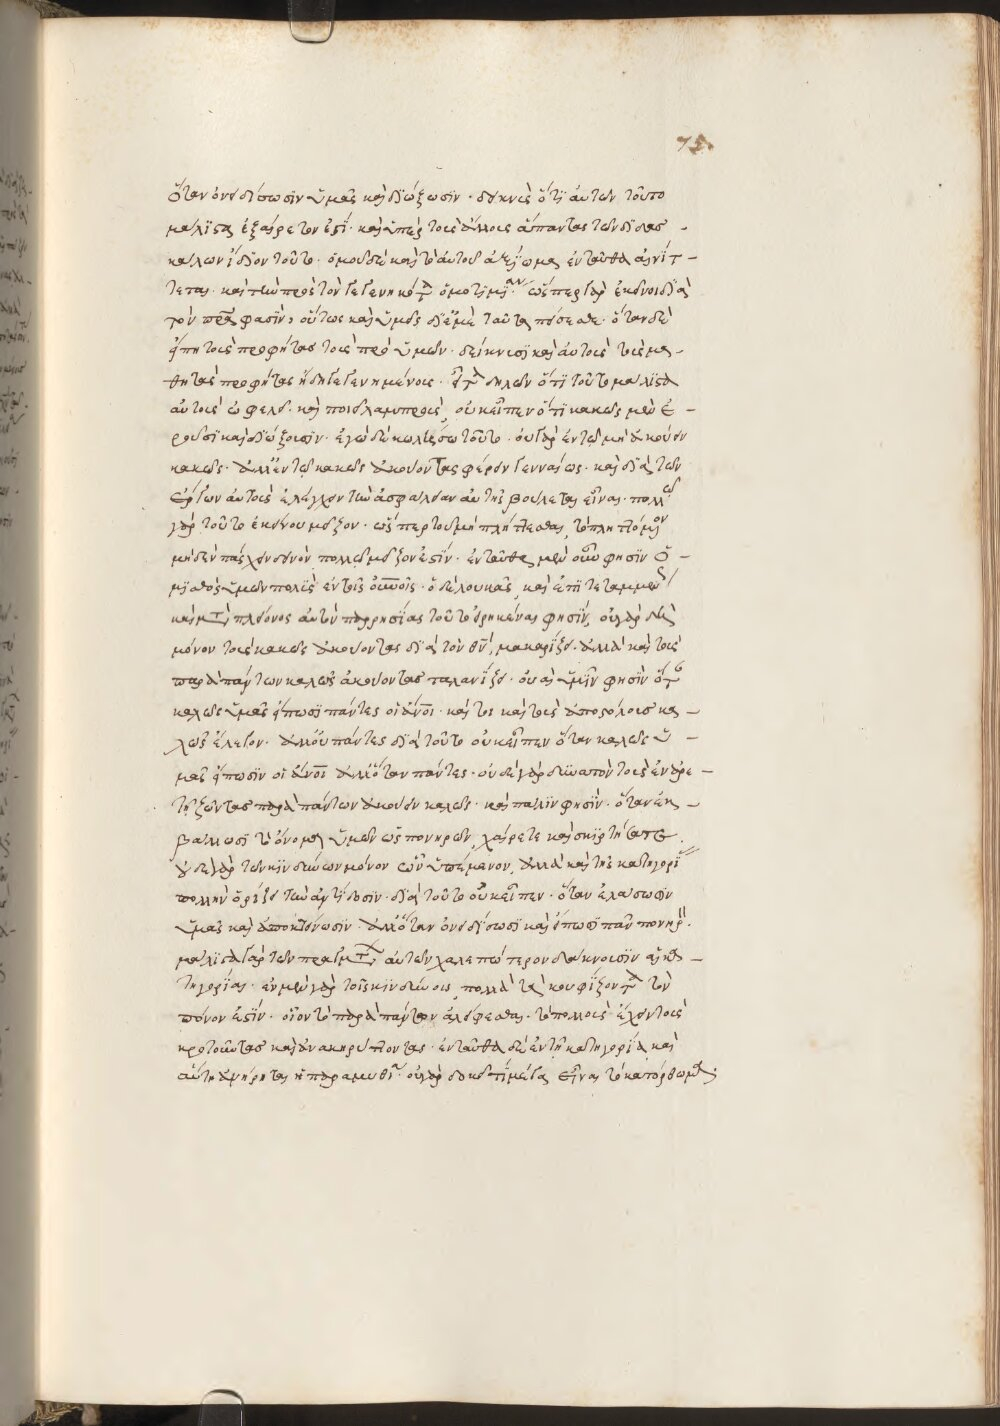 75
ὅταν ὀνειδίσωσϊν ὑμᾶς καὶ διώξωσϊν · δεικνὺς ὅτι αὐτῶν τοῦτο
μάλιστα ἐξαίρετον ἐστί · καὶ ὑπὲρ τοὺς ἄλλους ἅπαντας τῶν διδασ -
κάλων ἴδϊον τοῦτο · ὁμοῦ δὲ καὶ τὸ αὐτοῦ ἀξίωμα ἐνταῦθα αἰνίτ -
τεται · καὶ τὴν πρὸς τὸν γεγεννηκότα ὁμοτιμίαν ὥσπερ γὰρ ἐκεῖνοι διὰ
τὸν πρα φασϊν, οὕτως καὶ ὑμεῖς δι' ἐμὲ ταῦτα πείσεσθε · ὅταν δὲ
εἴπῃ τοὺς προφήτας τοὺς πρὸ ὑμῶν · δείκνυσι καὶ αὐτοὺς τοὺς μα -
θητὰς προφήτας ἤδη γεγενημένους · εἶτα δηλῶν ὅτι τοῦτο μάλιστα
αὐτοὺς ὠφελεῖ · καὶ ποιεῖ λαμπροὺς, οὐκ εἶπεν ὅτι κακῶς μὲν ἐ -
ροῦσι καὶ διώξουσιν · ἐγὼ δὲ κωλύσω τοῦτο · οὐ γὰρ ἐν τῷ μὴ ἀκούειν
κακῶς · ἀλλ' ἐν τῷ κακῶς ἀκούοντας φέρειν γενναίως · καὶ διὰ τῶν
ἔργων αὐτοὺς ἐλέγχειν τὴν ἀσφάλειαν αὐτῆς βούλεται εἶναι · πολλῶ
γὰρ τοῦτο ἐκείνου μεῖζον · ὥσπερ τοῦ μὴ πλήττεσθαι, τὸ πληττόμενον
μηδὲν πάσχειν δεινὸν πολλῷ μεῖζον ἐστίν · ἐνταῦθα μὲν οὖν φησϊν ὁ -
μϊσθὸς ὑμῶν πολὺς ἐν τοῖς οὐνοῖς · ὁ δὲ λουκᾶς, καὶ ἐπιτεταμμένως
καὶ μετὰ πλείονος αὐτὸν παρρησίας τοῦτο εἰρηκέναι φησϊν, οὐ γὰρ δὴ
μόνον τοὺς κακῶς ἀκούοντας διὰ τὸν θν, μακαρίζει · ἀλλὰ καὶ τοὺς
παρὰ πάντων καλῶς ἀκούοντας ταλανίζει · οὐαὶ ὑμῖν φησϊν ὅταν
καλῶς ὑμᾶς εἴπωσϊ πάντες οἱ ἄνοι · καίτοι καὶ τοὺς ἀποστόλους κα -
λῶς ἔλεγον · ἀλλ' οὐ πάντες διὰ τοῦτο οὐκ εἶπεν ὅταν καλῶς ὑ -
μᾶς εἴπωσϊν οἱ ἄνοι ἀλλ' ὅταν πάντες · οὐδὲ γὰρ δυνατὸν τοὺς ἐν ἀρε -
τῇ ζῶντας παρὰ πάντων ἀκούειν καλῶς · καὶ πάλϊν φησϊν · ὅταν ἐκ -
βάλλωσϊ τὸ ὄνομα ὑμῶν ὡς πονηρὸν, χαίρετε καὶ σκιρτήσατε ·
οὐδὲ γὰρ τῶν κινδύνων μόνον ὧν ὑπέμενον, ἀλλὰ καὶ τῆς κατηγορίας
πολλὴν ὁρίζει τὴν ἀντίδοσιν · διὰ τοῦτο οὐκ εἶπεν · ὅταν ἐλάσωσϊν
ὑμᾶς καὶ ἀποκτείνωσϊν · ἀλλ' ὅταν ὀνειδίσωσϊ καὶ εἴπωσϊ πᾶν πονηρὸν ·
μάλιστα γὰρ τῶν πραγμάτων αὐτῶν χαλεπώτερον δάκνουσϊν αἱ κα -
τηγορίαι · ἐν μὲν γὰρ τοῖς κινδύνοις, πολλὰ τὰ κουφίζοντα τὸν
πόνον ἐστϊν · οἷον τὸ παρὰ πάντων ἀλείφεσθαι · τὸ πολλοὺς ἔχειν τοὺς
κροτοῦντας καὶ ἀνακηρύττοντας · ἐνταῦθα δὲ ἐν τῇ κατηγορίᾳ καὶ
αὕτη ἀνῄρηται ἡ παραμυθία · οὐ γὰρ δοκεῖ τι μέγα εἶναι τὸ κατόρθωμα ·